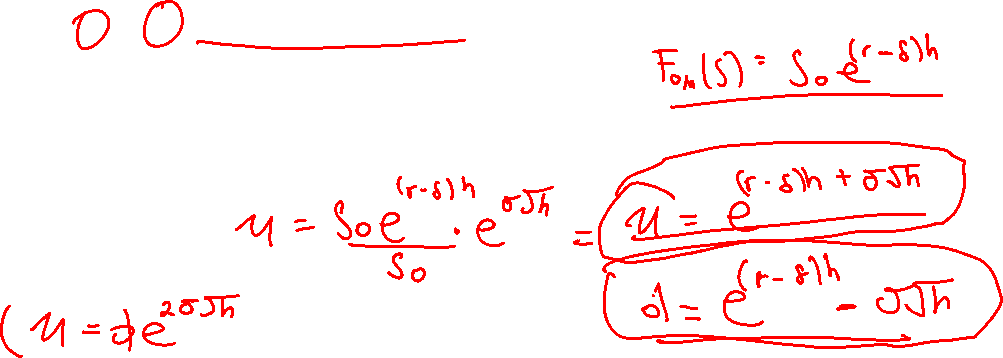 0 0
F₀,ₕ(S) = S₀ e^{(r-δ)h}
u = S₀e^{(r-δ)h}/S₀ · e^{σ√h} = u = e^{(r-δ)h + σ√h}
d = e^{(r-δ)h - σ√h}
(u = de^{2σ√h}